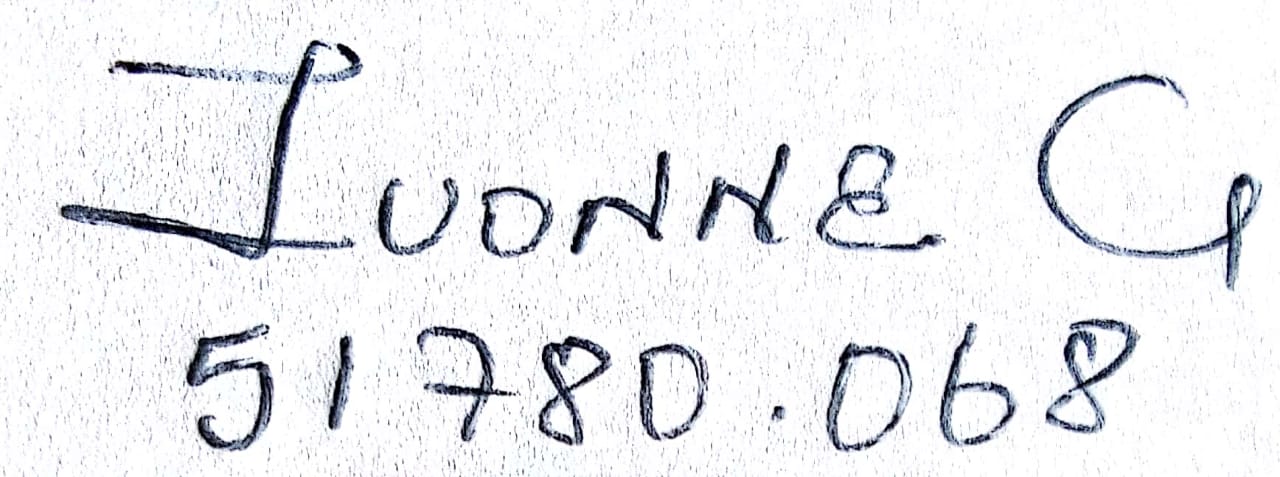 IVONNE G
51780.068